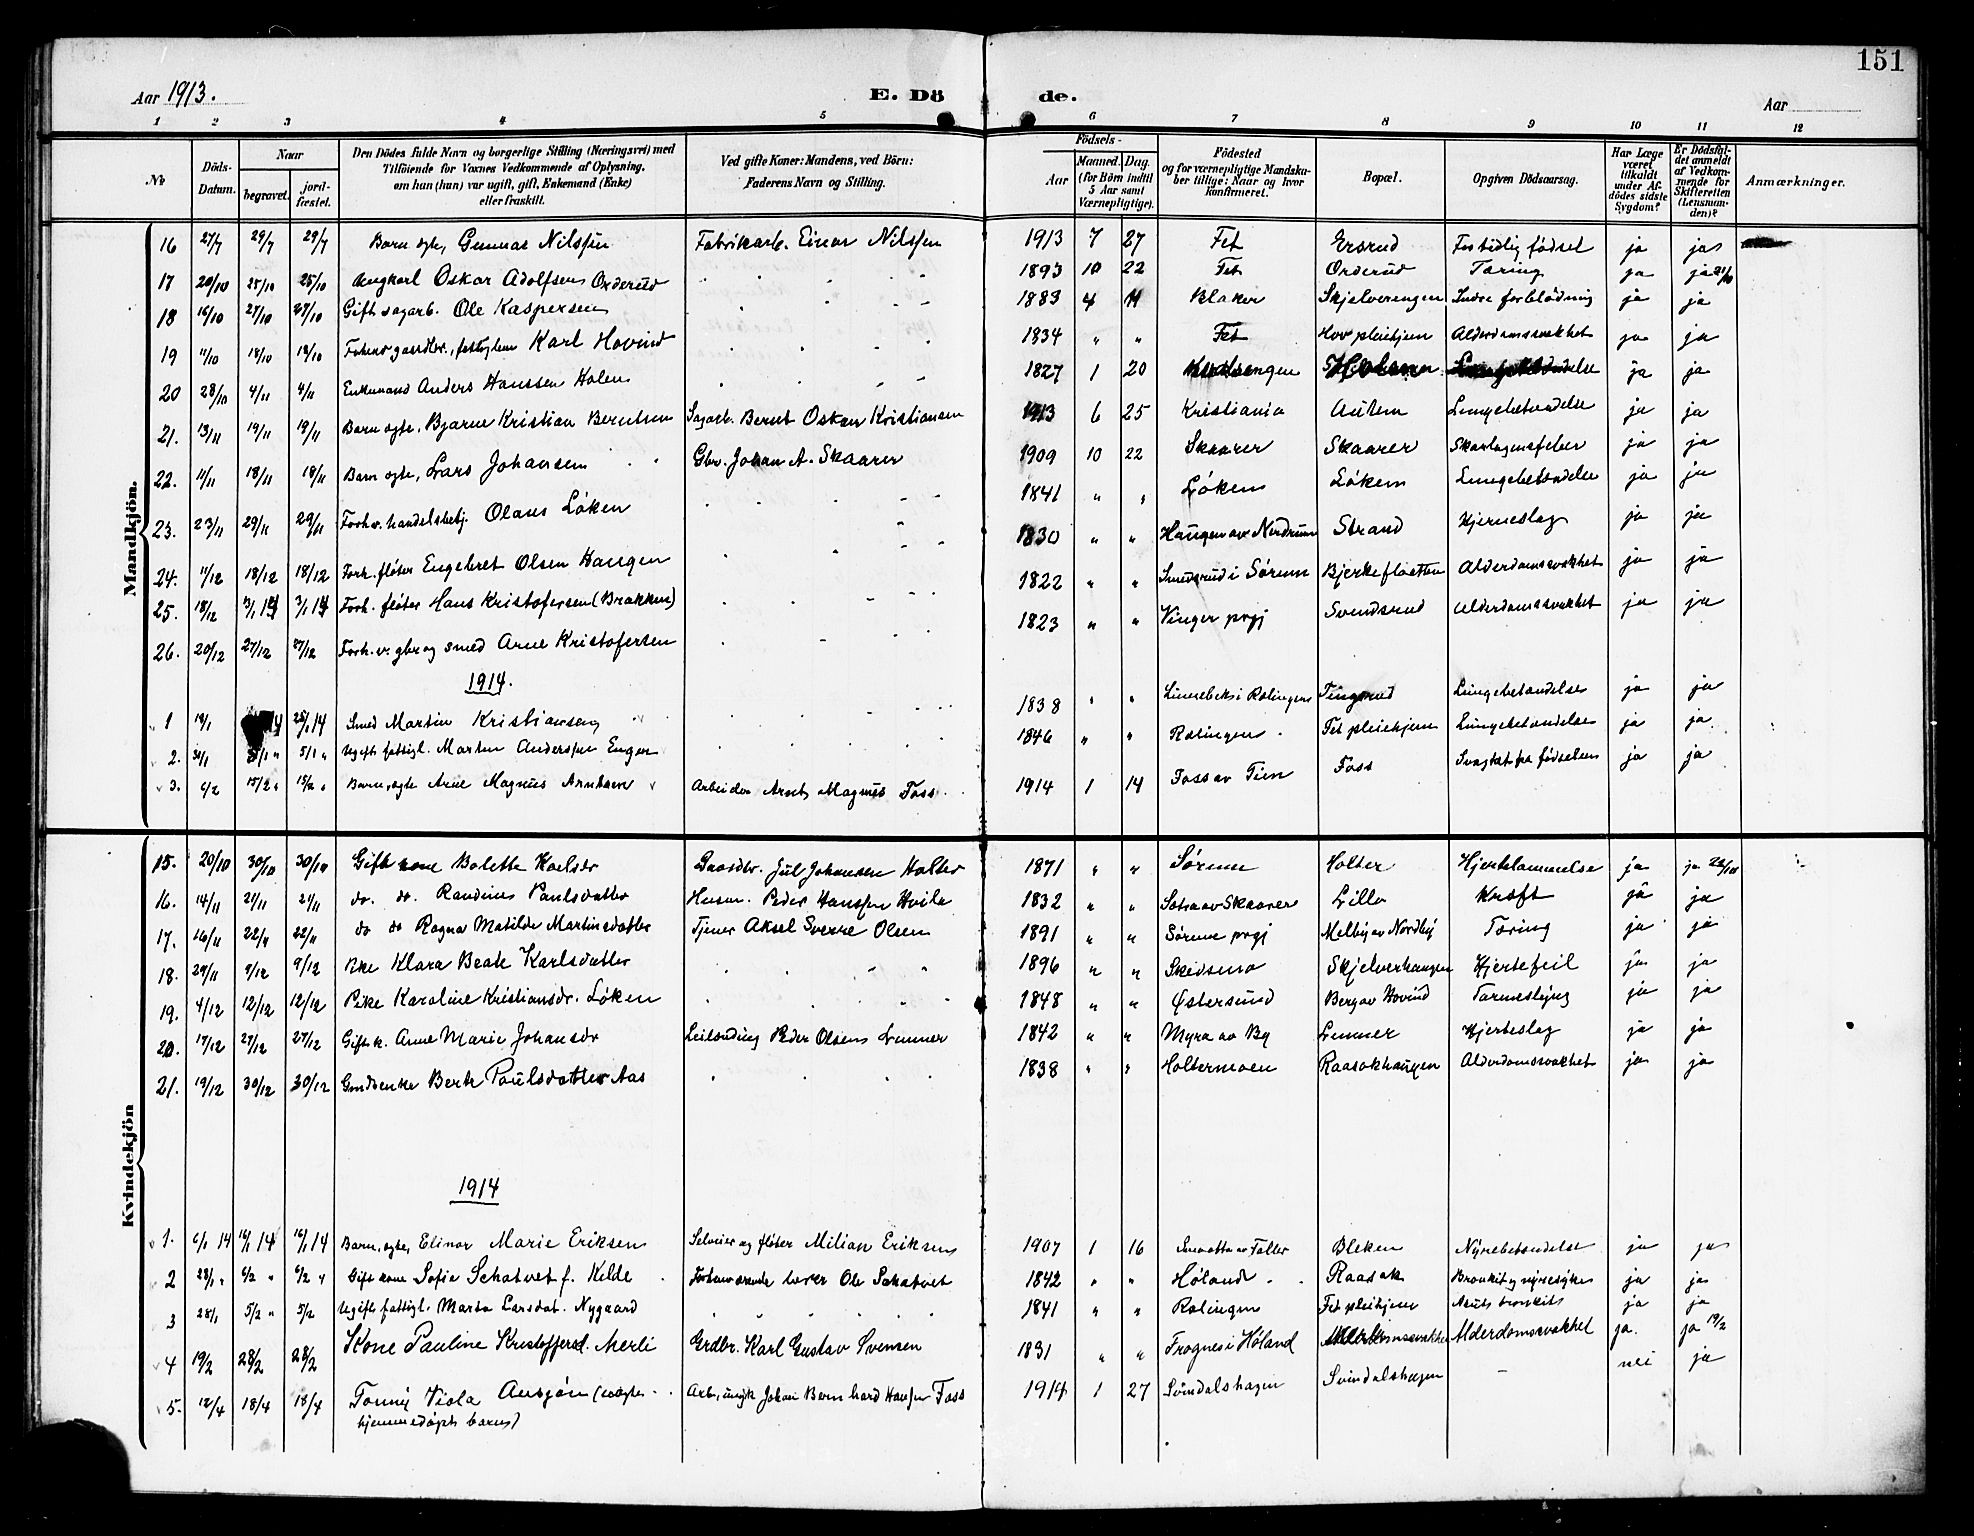 151
Aar 1913. E. Dö de. Aar
1 2 3 4 5 6 7 8 9 10 11 12
№ Döds-Datum. Naar begravet. jord-fæstet. Den Dödes fulde Navn og borgerlige Stilling (Næringsvei) med Tilföiende for Voxnes Vedkommende af Oplysning. om hun (han) var ugift, gift, Enkemand (Enke) eller fraskilt. Ved gifte Koner: Mandens, ved Börn: Faderens Navn og Stilling. Födsels- Aar Maaned. Dag. (for Börn indtil 5 Aar samt Værnepligtige). Födested og for værnepligtige Mandskaber tillige: Naar og hvor konfirmeret. Bopæl. Opgiven Dödsaarsag. Har Læge været tilkaldt under Afdödes sidste Sygdom? Er Dödsfaldet anmeldt af Vedkommende for Skifteretten (Lensmanden)? Anmærkninger.
Mandkjön.
16 27/7 29/7 29/7 Barn egte, Gunnar Nilssen Fabrikarb. Einar Nilssen 1913 7 27 Fet Ersrud For tidlig födsel ja ja
17 20/10 25/10 25/10 Ungkarl Oskar Adolfsen Orderud 1893 10 22 Fet Orderud Tæring ja ja 21/10
18 16/10 27/10 27/10 Gift sagarb. Ole Kaspersen 1883 4 11 Blaker Skjelverengen Indre forblødning ja ja
19 11/10 18/10 18/10 Karl Hovind 1834 " " Fet Hov pleiehjem Alderdomssvakhet ja ja
20 28/10 4/11 4/11 Enkemand Anders Hanssen Holen 1827 1 20 ja ja
21. 13/11 19/11 19/11 Barn egte, Bjarne Kristian Berntsen Sagarb. Bernt Oskar Kristiansen 1913 6 25 Kristiania Autern Lungebetændelse ja ja
22. 11/11 18/11 18/11 Barn egte, Lars Johansen Gbr. Johan A. Skaarer 1909 10 22 Skaarer Skaarer Skarlagensfeber ja ja
23. 23/11 29/11 29/11 Forhv. handelsbetj. Olaus Løken 1841 " " Løken Løken Lungebetændelse ja ja
24. 11/12 18/12 18/12 Forh. fløter Engebret Olsen Haugen 1830 " " Haugen av Nerdrum Strand Hjerneslag ja ja
25. 18/12 3/1 14 3/1 14 Forh. fløter Hans Kristofersen (Brakken) 1822 " " Smedsrud i Sørum Bjerkefloetten Alderdomssvakhet ja ja
26. 20/12 27/12 27/12 Forh.v. gbr og smed Arne Kristofersen 1823 " " Vinger prgj Svendsrud Alderdomssvakhet ja ja
1914.
1 19/1 25/1 14 Smed Martin Kristiansen 1838 " " Linnebek i Rælingen Tingsrud Lungebetændelse ja ja
2. 5/1 " Ugift fattigl. Marten Anderssen Engen 1846 " " Rælingen Fet pleiehjem Lungebetændelse ja ja
3. 6/2 15/2 " 15/2 " Barn, egte Arne Magnus Arntsen Arbeider Arnt Magnus Foss 1914 1 14 Foss av Tien Foss Svaghet fra fødselen ja ja
Kvindekjön
15. 20/10 30/10 30/10 Gift kone Bolette Karlsdr Gaardbr. Jul Johansen Holter 1871 " " Sørum Holter Hjertelammelse ja ja
16. 14/11 21/11 21/11 do. do. Randine Paulsdatter Husm. Peder Hanssen Hvila 1832 " " Sætra av Skaarer Lille Kræft ja ja
17. 16/11 22/11 22/11 do do Ragna Matilde Martinsdatter Tjener Aksel Sverre Olsen 1891 " " Sørum prgj Melby av Nordby Tæring ja ja
18. 29/11 9/12 9/12 Pike Klara Beate Karlsdatter 1896 " " Skedsmo Skjelverhaugen Hjertefeil ja ja
19. 4/12 12/12 12/12 Pike Karoline Kristiansdr. Løken 1848 " " Østersund Berg av Hovind Tarmeslyng ja ja
20. 17/12 27/12 27/12 Gift k. Anne Marie Johansdr Leilænding Peder Olsens Lunner 1842 " " Myra av By Lunner Hjerteslag ja ja
21. 19/12 30/12 30/12 Gmdsenke Berte Paulsdatter Aas 1838 " " Holtermoen Raasokhaugen Alderdomssvakhet ja ja
1914
1. 6/1 14 16/1 14 16/1 14 Barn, egte, Elinor Marie Eriksen Selveier og fløter Milian Eriksen 1907 1 16 Faller Bleken Nyrebetændelse ja ja
2 28/1 " 6/2 " 6/2 " Gift kone Sofie Schatvet f. Kilde Forhenværende lærer Ole Schatvet 1842 " " Høland Raasok Bronkit og nyresyke ja ja
3 28/1 5/2 " 5/2 Ugift fattigl. Marte Larsdat. Nygaard 1841 " " Rælingen Fet pleiehjem Akut bronkit ja ja
4 19/2 28/2 28/2 Kone Pauline Kristoffersd. Merli Grdbr. Karl Gustav Svensen 1831 " " Frognes i Høland Alderdomssvakhet ja. ja 19/2
5. 12/4 18/4 18/4 Tonny Viola Ansjøn (uegte hjemmedøpt barn) Arb, ungk Johan Bernhard Hansen Foss 1914 1 27 Svindalshagen Svindalshagen — nei ja